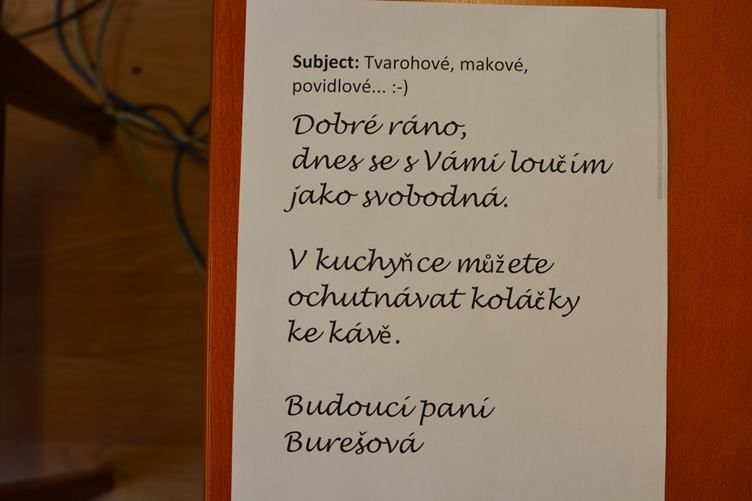 Subject: Tvarohové, makové,
povidlové... :-)
Dobré ráno,
dnes se s Vámi loučím
jako svobodná.
V kuchyňce můžete
ochutnávat koláčky
ke kávě.
Budoucí paní
Burešová